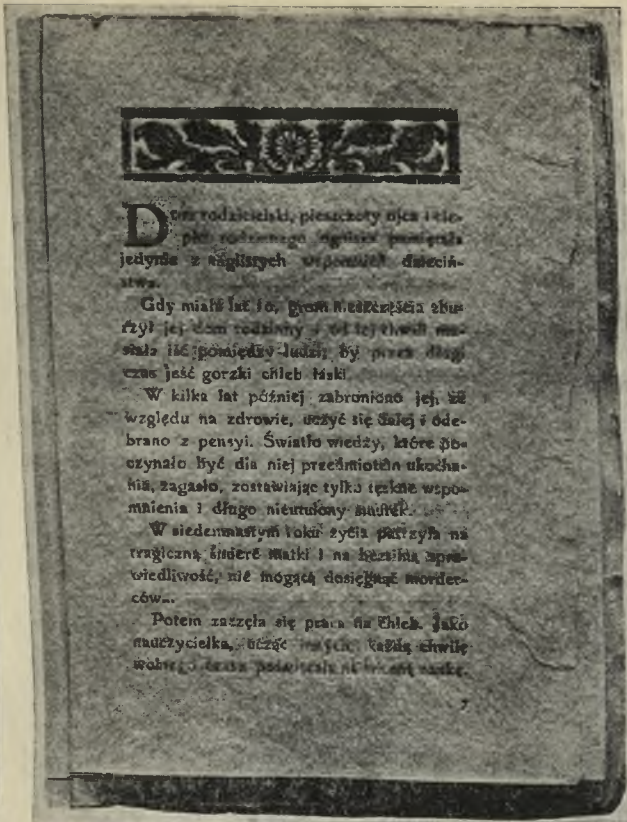 Dom rodzicielski, pieszczoty ojca i cie-
pło rodzinnego ogniska pamiętała
jedynie z mglistych wspomnień dzieciń-
stwa.
Gdy miała lat 10, grom nieszczęścia zbu-
rzył jej dom rodzinny i od tej chwili mu-
siała iść pomiędzy ludzi, by przez długi
czas jeść gorzki chleb łaski.
W kilka lat później zabroniono jej, ze
względu na zdrowie, uczyć się dalej i ode-
brano z pensyi. Światło wiedzy, które po-
czynało być dla niej przedmiotem ukocha-
nia, zagasło, zostawiając tylko tęskne wspo-
mnienia i długo nieutulony smutek.
W siedemnastym roku życia patrzyła na
tragiczną śmierć matki i na bezsilną spra-
wiedliwość, nie mogącą dosięgnąć morder-
ców...
Potem zaczęła się praca na chleb. Jako
nauczycielka, ucząc innych, każdą chwilę
wolnego czasu poświęcała na własną naukę.
7